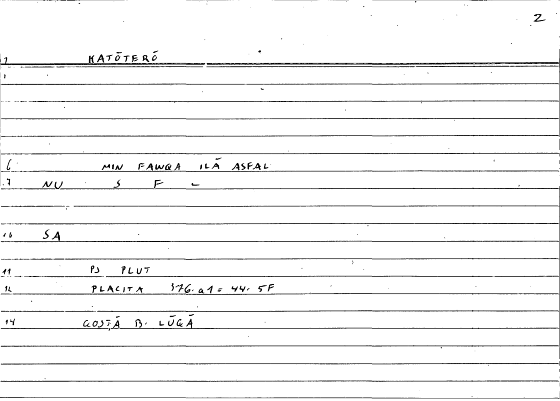 2
1 KATŌTERŌ
6 MIN FAWQA ILĀ ASFAL
7 NU S F –
10 SA
11 PS PLUT
12 PLACITA 376.a1 = 44.5F
14 QOSṬĀ B. LŪQĀ